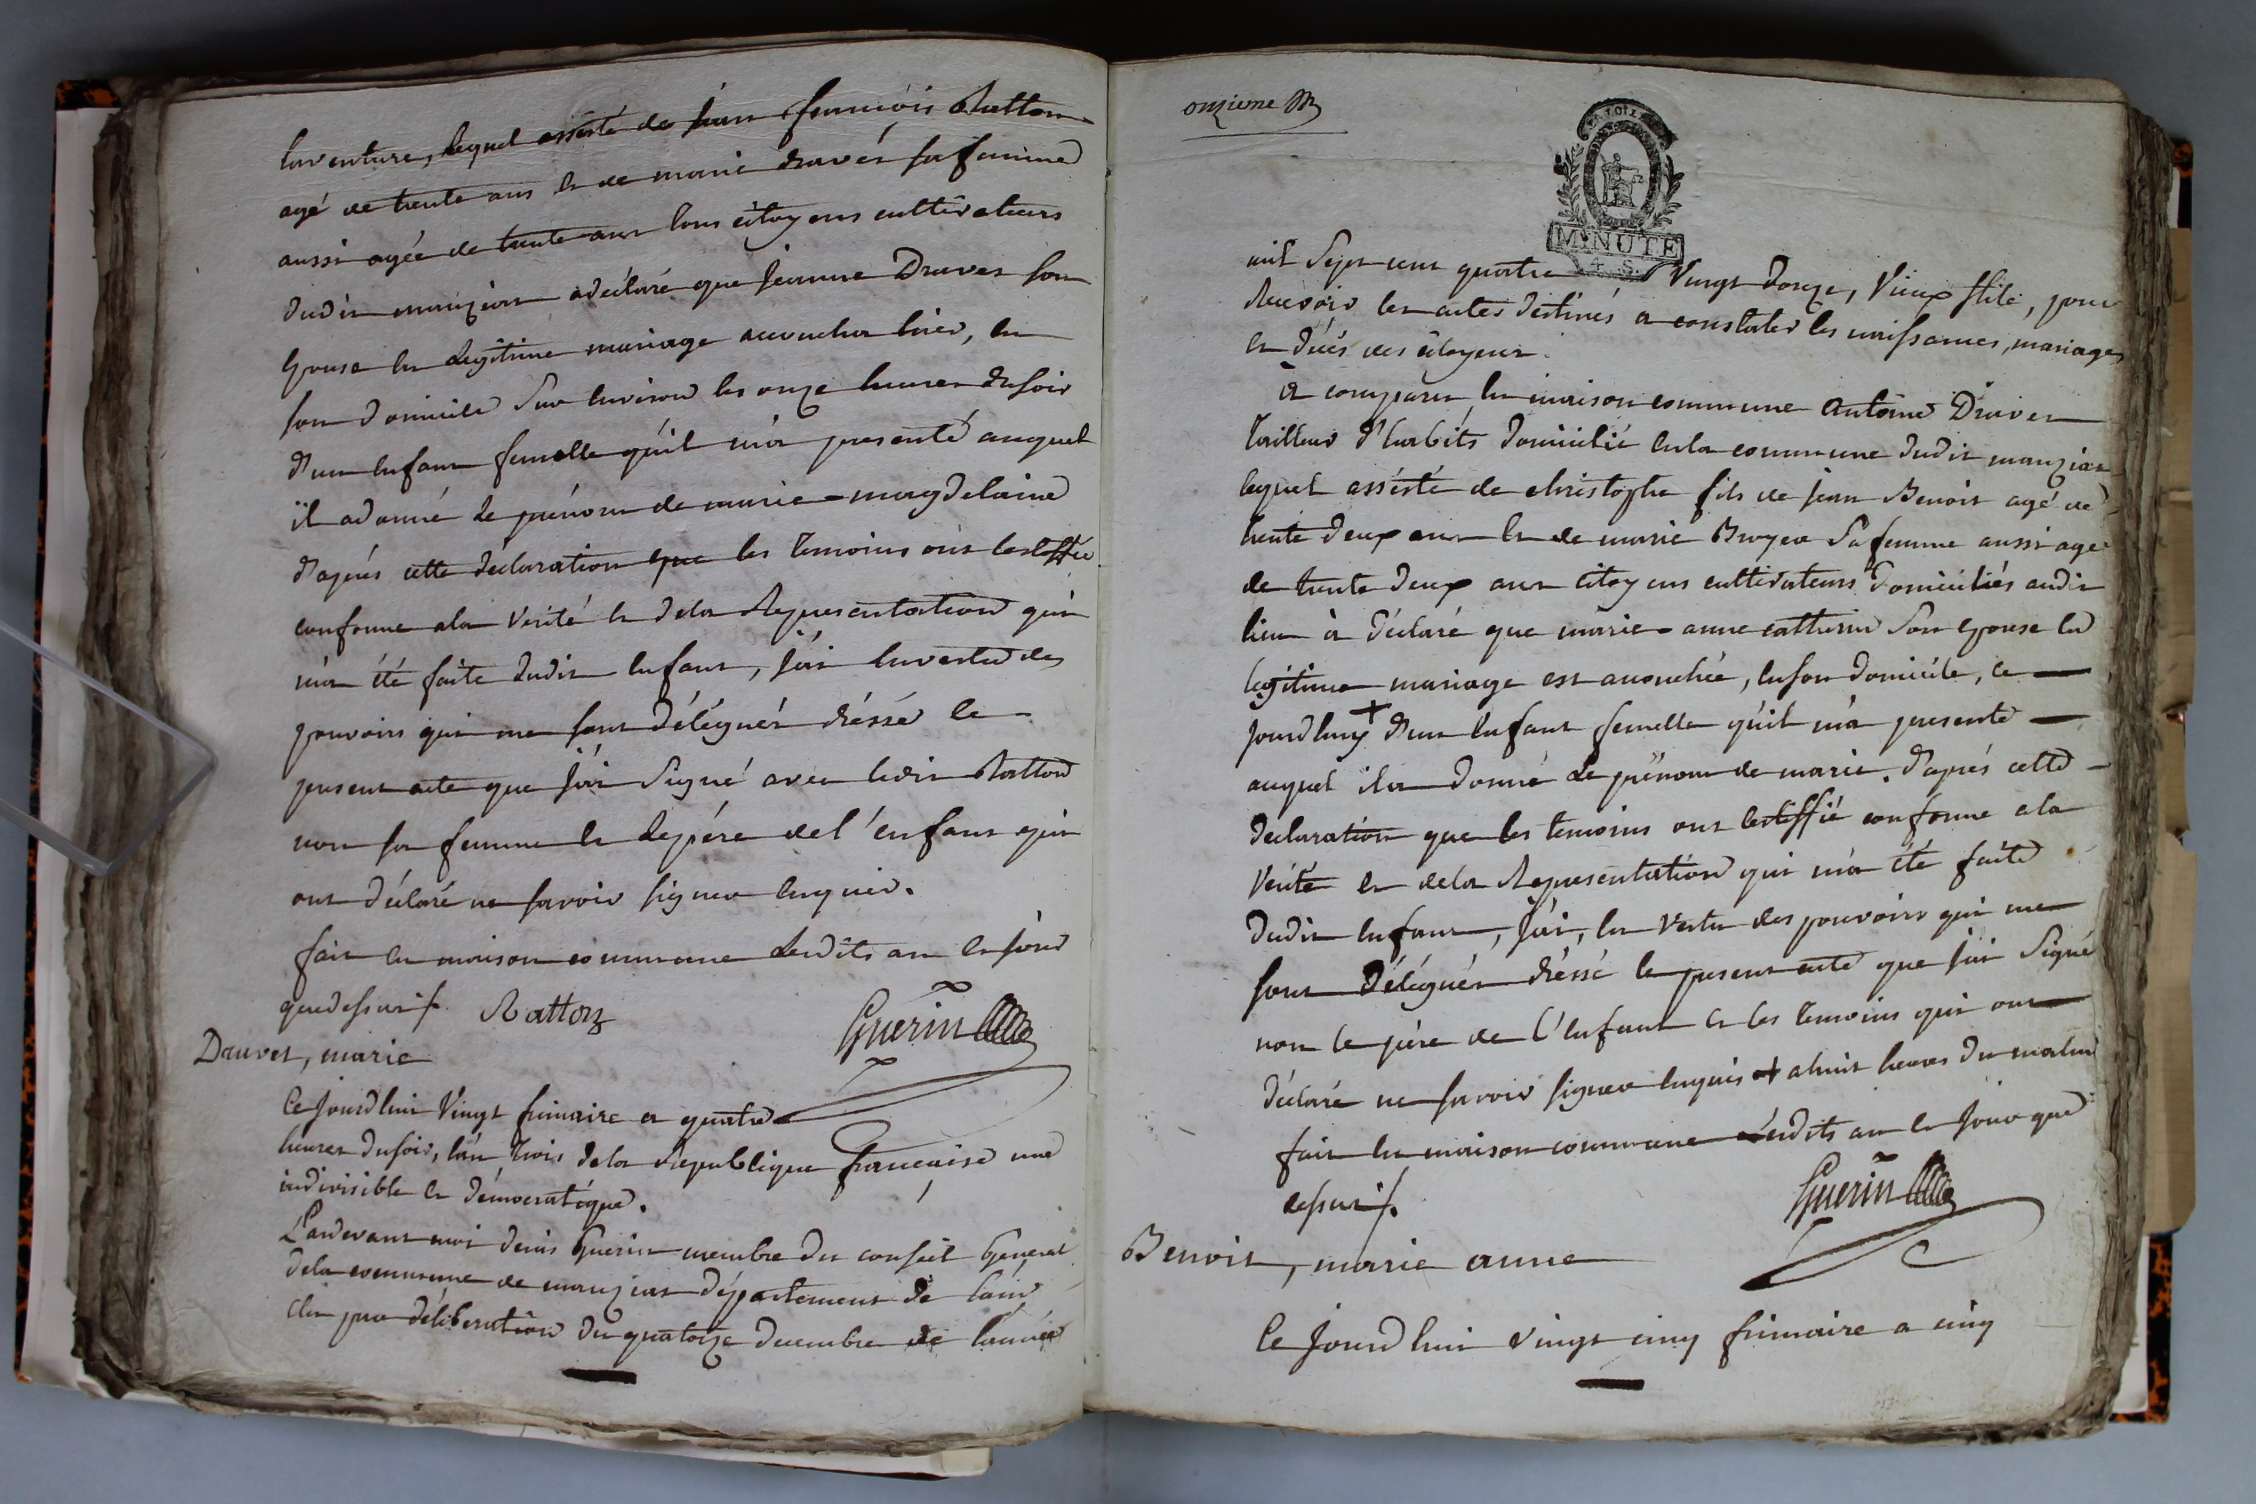 laventure, lequel assisté de jean françois Ratton
agé de trente ans et de marie dravet sa femme
aussi agée de trente ans tous citoyens cultivateurs
dudit manziat a déclaré que jeanne Druvet son
epouse en legitime mariage accoucha hier, en
son domicile sur environ les onze heures du soir
d'un enfant femelle qu'il m'a presenté auquel
il a donné le prénom de marie-magdelaine
d'aprés cette déclaration que les temoins ont certiffié
conforme a la verité et de la Representation qui
m'a été faite dudit enfant, j'ai en vertu des
pouvoirs qui me sont délégués dréssé le
present acte que j'ai signé avec ledit Ratton
non sa femme et le pére de l'enfant qui
ont déclaré ne savoir signer enquis.
fait en maison commune lesdits an et jour
que dessus /. Ratton Guerin
Druvet, marie
Ce jourdhui vingt frimaire a quatre
heures du soir, l'an trois de la République française une
indivisible et démocratique.
Pardevant moi denis Guerin membre du conseil General
de la commune de manziat département de l'ain
élu par délibération du quatorze decembre de l'année
onzieme
MINUTE
4. S.
mil sept cent quatre vingt douze, vieux stile, pour
Recevoir les actes destinés a constater les naissances, mariages
et décés des citoyens.
a comparu en maison commune Antoine Druvet
tailleur d'habits domicilié en la commune dudit manziat
lequel assisté de christophe fils de jean Benoit agé de
trente deux ans et de marie Broyer sa femme aussi agée
de trente deux ans citoyens cultivateurs domiciliés audit
lieu à déclaré que marie-anne catherin son epouse en
legitime mariage est accouchée, en son domicile, ce
jourdhuy + d'un enfant femelle qu'il m'a presenté
auquel il a donné le prénom de marie. d'aprés cette
declaration que les temoins ont certiffié conforme a la
verité et de la Representation qui m'a été faite
dudit enfant, j'ai, en vertu des pouvoirs qui me
sont délégués dréssé le present acte que j'ai signé
non le pére de l'enfant et les temoins qui ont
déclaré ne savoir signer enquis + a huit heures du matin
fait en maison commune lesdits an et jour que
dessus /. Guerin
Benoit, marie anne
Ce jourdhui vingt cinq frimaire a cinq